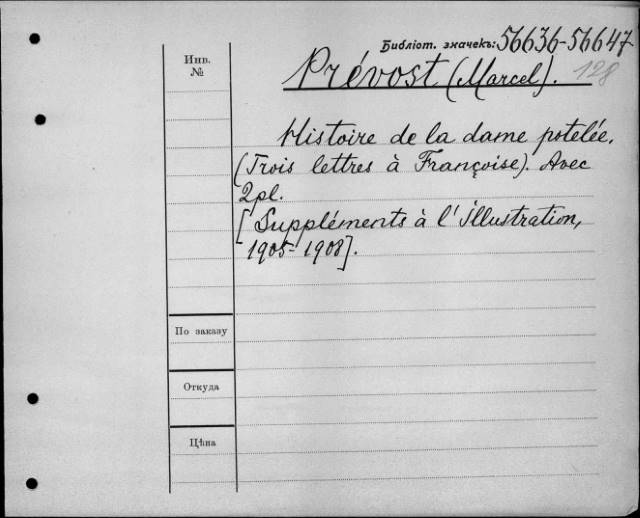 Библіот. значекъ: 56636-56647
128
Инв. №
Prévost (Marcel).
Histoire de la dame potelée.
(Trois lettres à Françoise). Avec
2pl.
[Suppléments à l'illustration,
1905-1908].
По заказу
Откуда
Цѣна